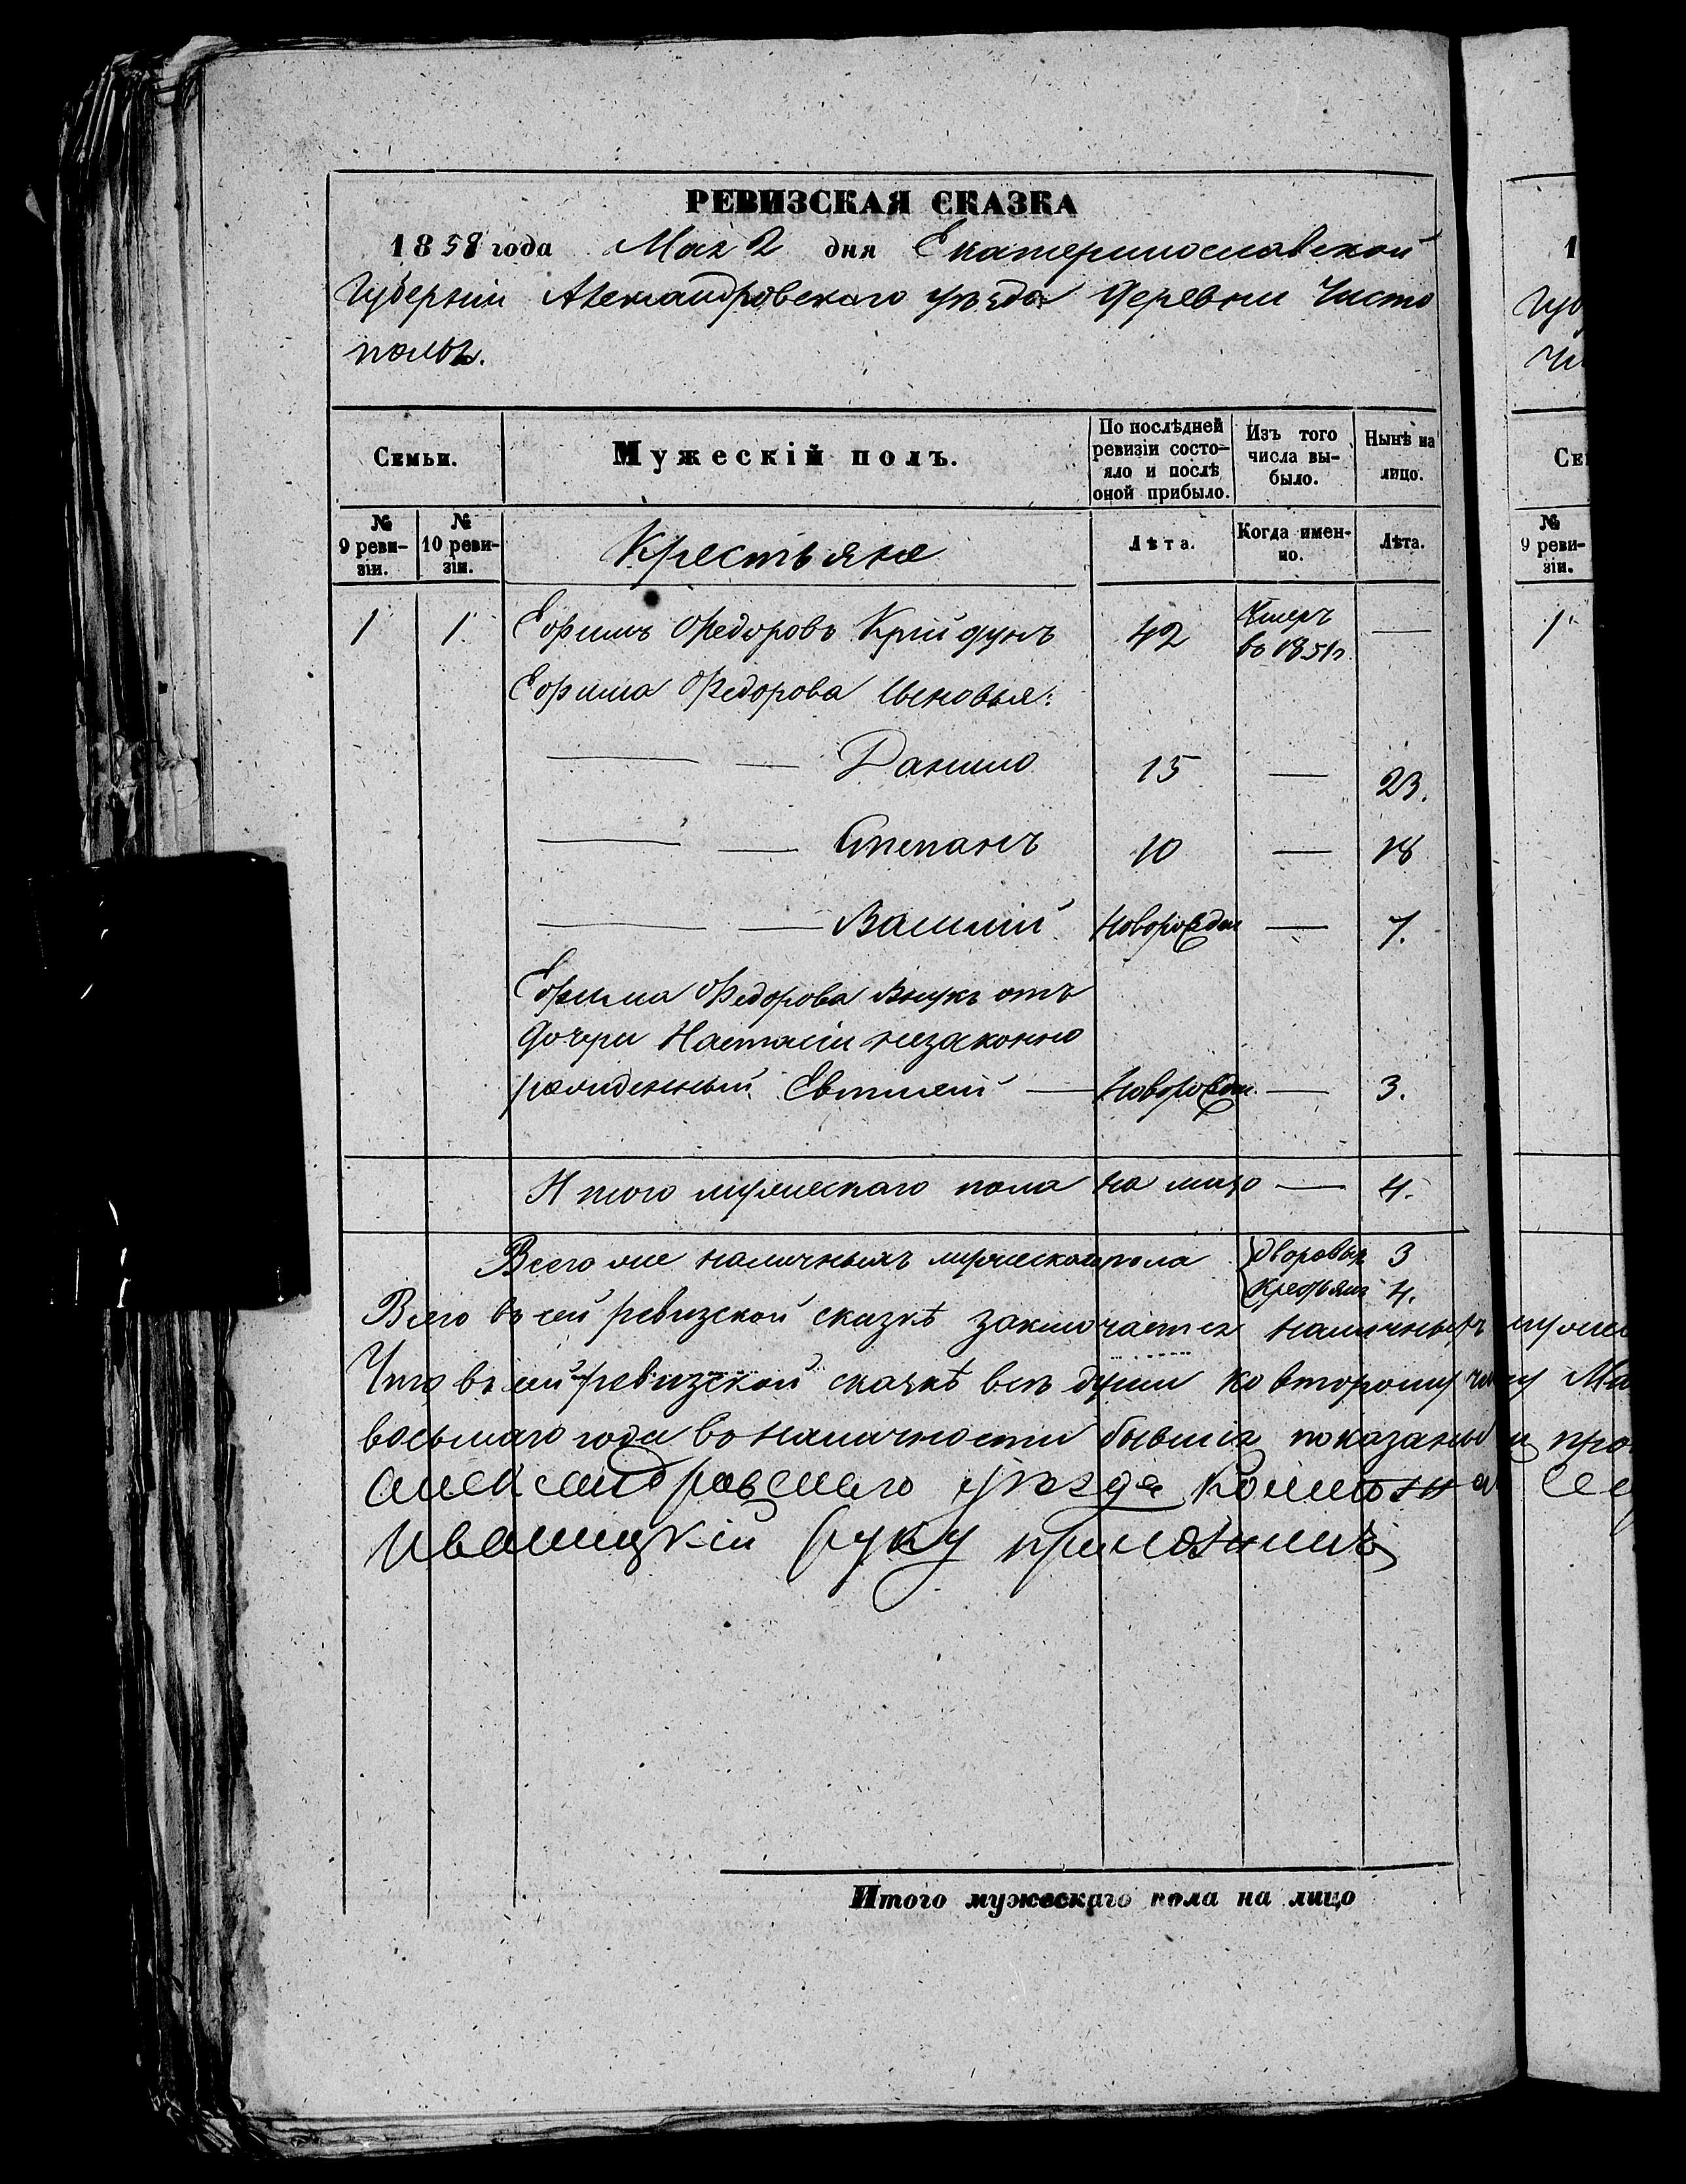 РЕВИЗСКАЯ СКАЗКА
1858 года Мая 2 дня Екатеринославской
Губерніи Александровскаго уѣзда деревни Чисто
поль.
Семьи.
Мужескій полъ.
По послѣдней ревизіи состо-яло и послѣ оной прибыло.
Изъ того числа вы-было.
Нынѣ на лицо.
№ 9 реви-зіи.
№ 10 реви-зіи.
Крестьяне
Лѣта.
Когда имен-но.
Лѣта.
1 1 Ефимъ Федоровъ 42 Умеръ въ 1851г. —
Ефима Федорова сыновья:
— — Данило 15 — 23.
— — Степанъ 10 — 18
— — Василій Новорожден — 7.
Ефима Федорова внукъ отъ
дочери Настасіи незаконно
рожденный Евтихій — Новорожден. — 3.
Итого мужескаго пола на лицо — 4.
Всего же наличныхъ мужескаго пола {Дворовых 3
{Крестьян 4.
Всего въ сей ревизской сказкѣ заключается наличныхъ мужес
Что въ сей ревизской сказкѣ всѣ души ко второму числу Ма
восьмаго года въ наличности бывшія показаны и про
Александровскаго уѣзда
Ивашицкій руку приложилъ
Итого мужескаго пола на лицо
1
Губ
Чи
Се
№
9 реви-
зіи.
1